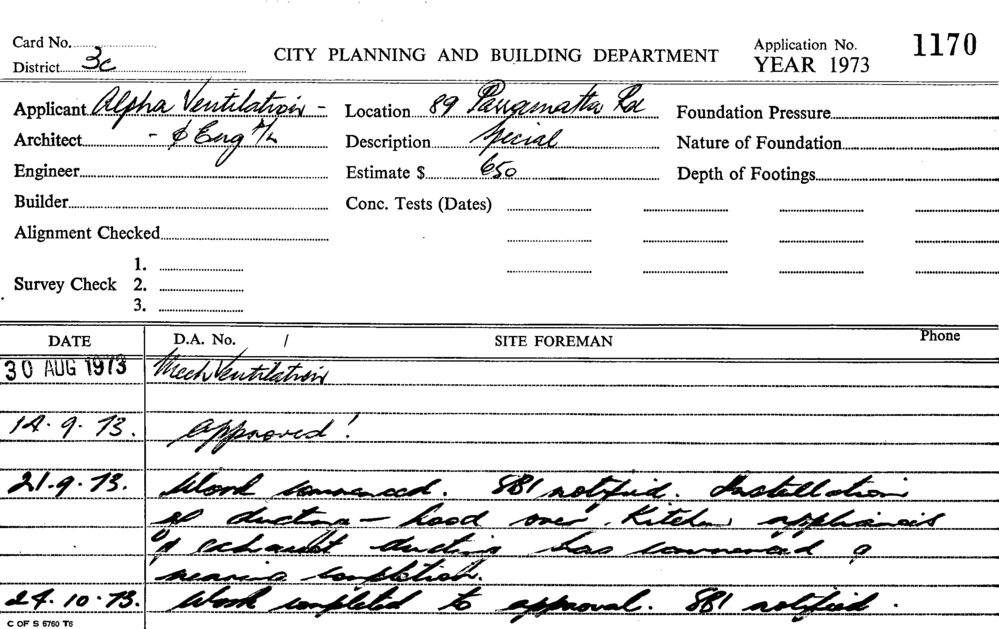 Card No.
District 3c
CITY PLANNING AND BUILDING DEPARTMENT
Application No. 1170
YEAR 1973
Applicant Alpha Ventilation -
Location 89 Parramatta Rd
Foundation Pressure
Architect - & Eng P/L
Description Special
Nature of Foundation
Engineer
Estimate $ 650
Depth of Footings
Builder
Conc. Tests (Dates)
Alignment Checked
Survey Check 1.
2.
3.
DATE D.A. No. / SITE FOREMAN Phone
30 AUG 1973 Mech Ventilation
14.9.73. approved!
21.9.73. Work commenced. SBI notified. Installation
of ducting - hood over Kitchen appliances
exhaust ducting has commenced
nearing completion.
24.10.73. Work completed to approval. SBI notified.
C OF S 6760 T6